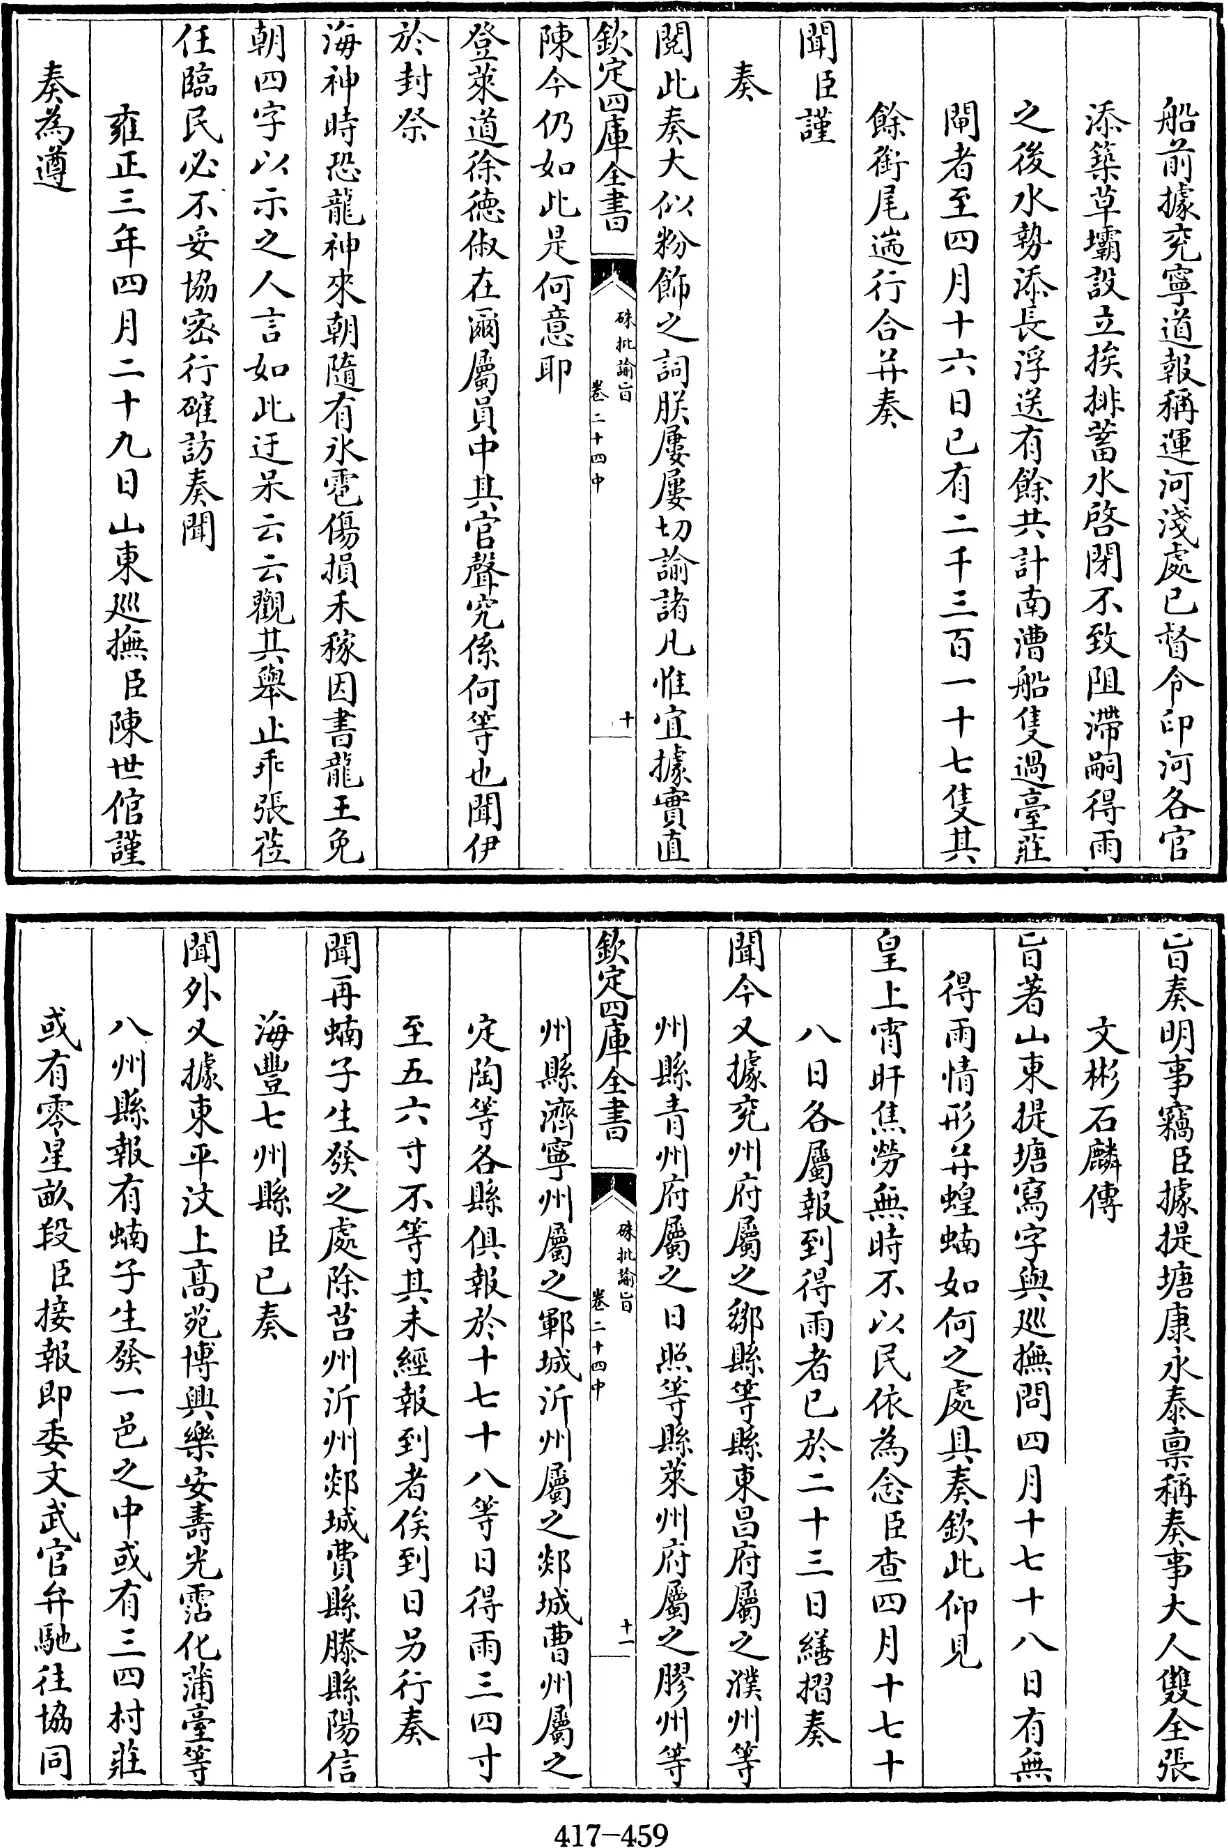 船前據兖寧道報稱運河淺處已督令印河各官
添築草壩設立挨排蓄水啓閉不致阻滯嗣得雨
之後水勢添長浮送有餘共計南漕船隻過臺莊
閘者至四月十六日已有二千三百一十七隻其
餘銜尾遄行合并奏
聞臣謹
奏
閱此奏大似粉飾之詞朕屢屢切諭諸凡惟宜據實直
欽定四庫全書
硃批諭旨
卷二十四中
十
陳今仍如此是何意耶
登萊道徐德俶在爾屬員中其官聲究係何等也聞伊
於封祭
海神時恐龍神來朝隨有氷雹傷損禾稼因書龍王免
朝四字以示之人言如此迂呆云云觀其舉止乖張蒞
任臨民必不妥協密行確訪奏聞
雍正三年四月二十九日山東廵撫臣陳世倌謹
奏為遵
旨奏明事竊臣據提塘康永泰禀稱奏事大人雙全張
文彬石麟傳
旨著山東提塘寫字與廵撫問四月十七十八日有無
得雨情形并蝗蝻如何之處具奏欽此仰見
皇上宵旰焦勞無時不以民依為念臣查四月十七十
八日各屬報到得雨者已於二十三日繕摺奏
聞今又據兖州府屬之鄒縣等縣東昌府屬之濮州等
州縣青州府屬之日照等縣萊州府屬之膠州等
欽定四庫全書
硃批諭旨
卷二十四中
十一
州縣濟寧州屬之鄆城沂州屬之郯城曹州屬之
定陶等各縣俱報於十七十八等日得雨三四寸
至五六寸不等其未經報到者俟到日另行奏
聞再蝻子生發之處除莒州沂州郯城費縣滕縣陽信
海豐七州縣臣已奏
聞外又據東平汶上高苑博興樂安壽光霑化蒲臺等
八州縣報有蝻子生發一邑之中或有三四村莊
或有零星畝段臣接報即委文武官弁馳往協同
417-459